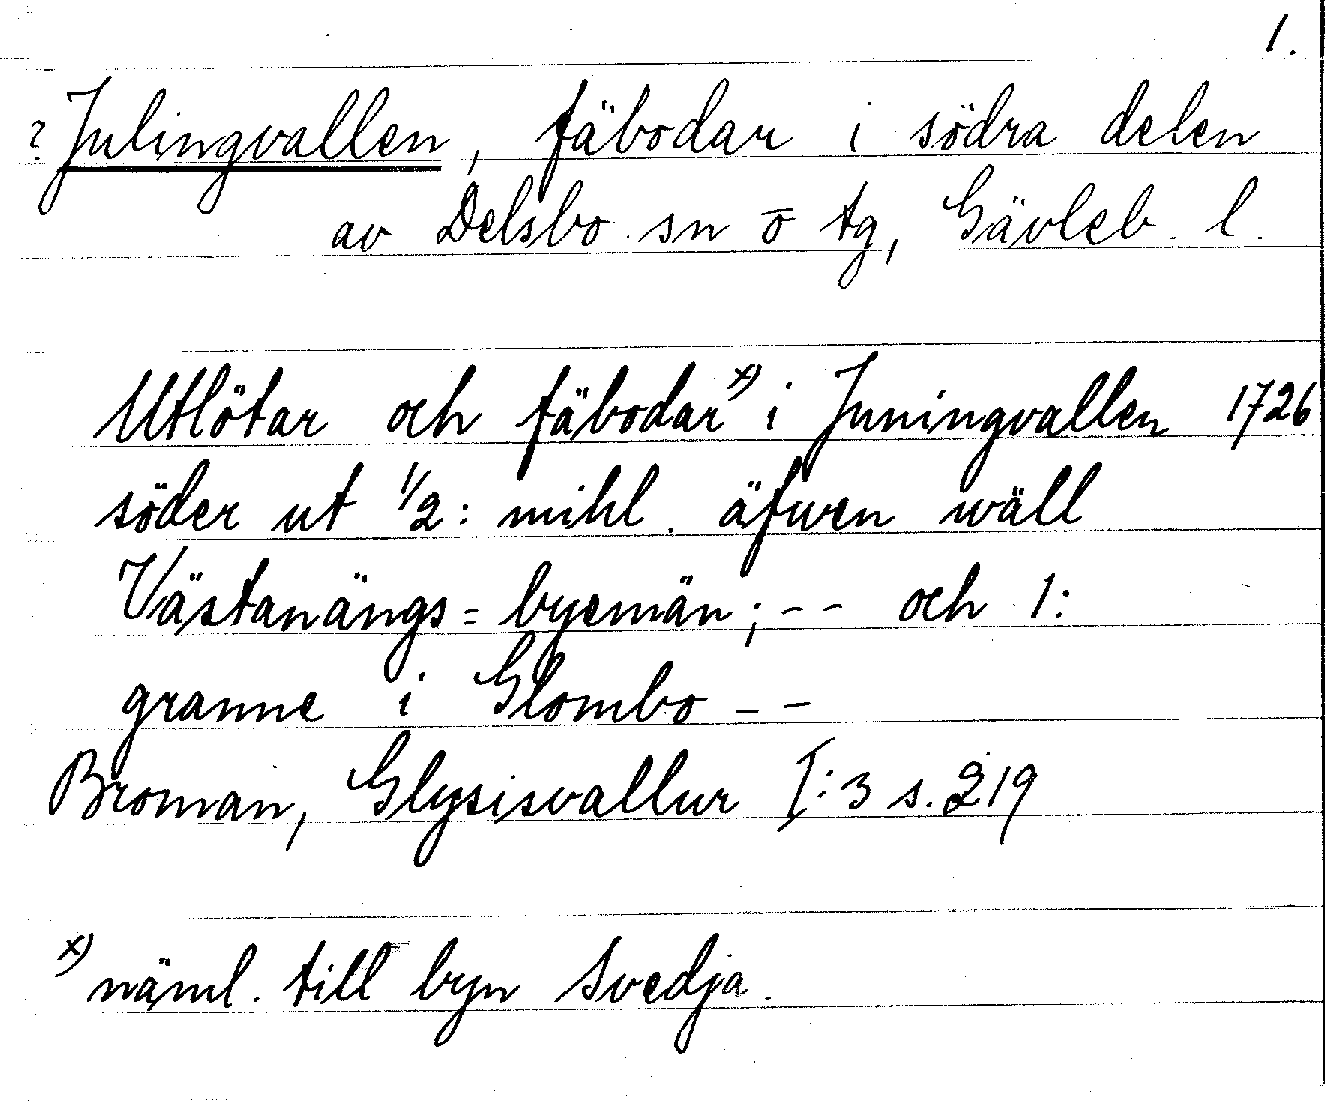 1.
? Julingvallen, fäbodar i södra delen
av Delsbo sn o tg, Gävleb. l.
Utlötar och fäbodar x) i Juningvallen 1726
söder ut 1/2: mihl. äfwen wäll
Västanängs= byemän; -- och 1:
granne i Glombo --
Broman, Glysisvallur I:3 s. 219
x) näml. till byn Svedja.